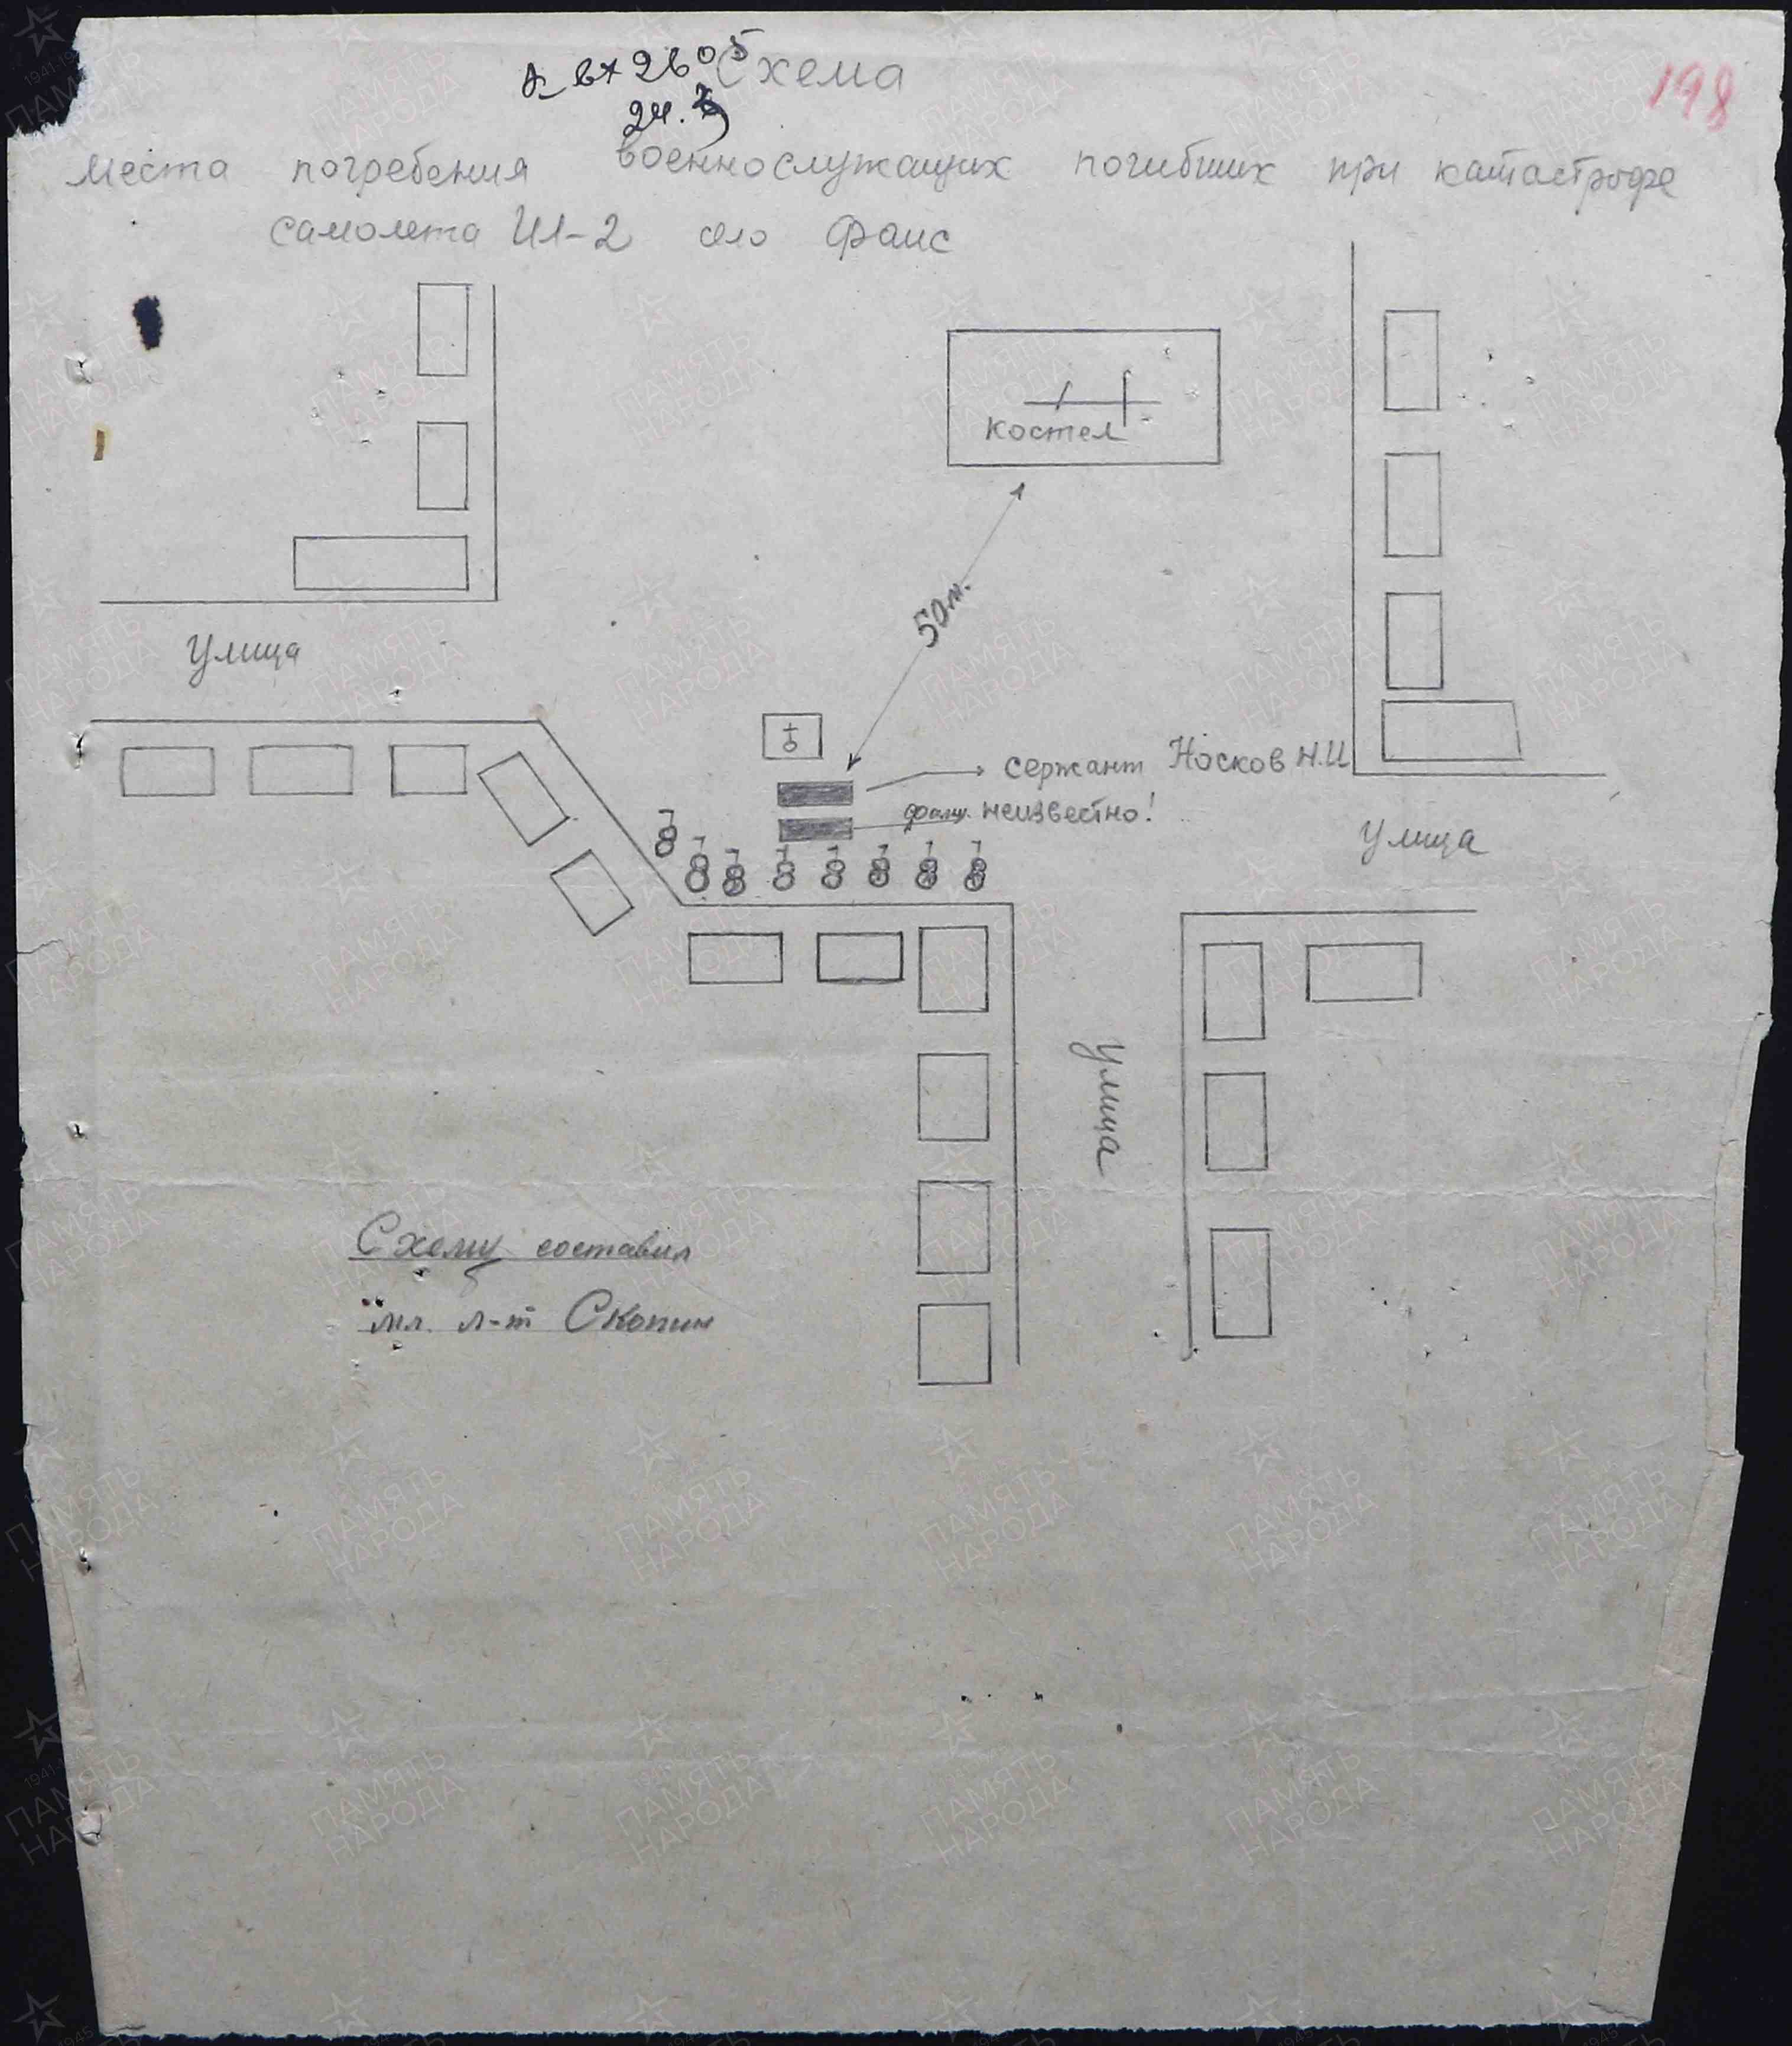 вх 2605
24.
198
Схема
места погребения военнослужащих погибших при катастрофе
самолета Ил-2 Фаис
костел
50м.
Улица
сержант Носков Н.И
фам. неизвестно!
Улица
Улица
Схему составил
мл. л-т Скопин
ПАМЯТЬ
НАРОДА